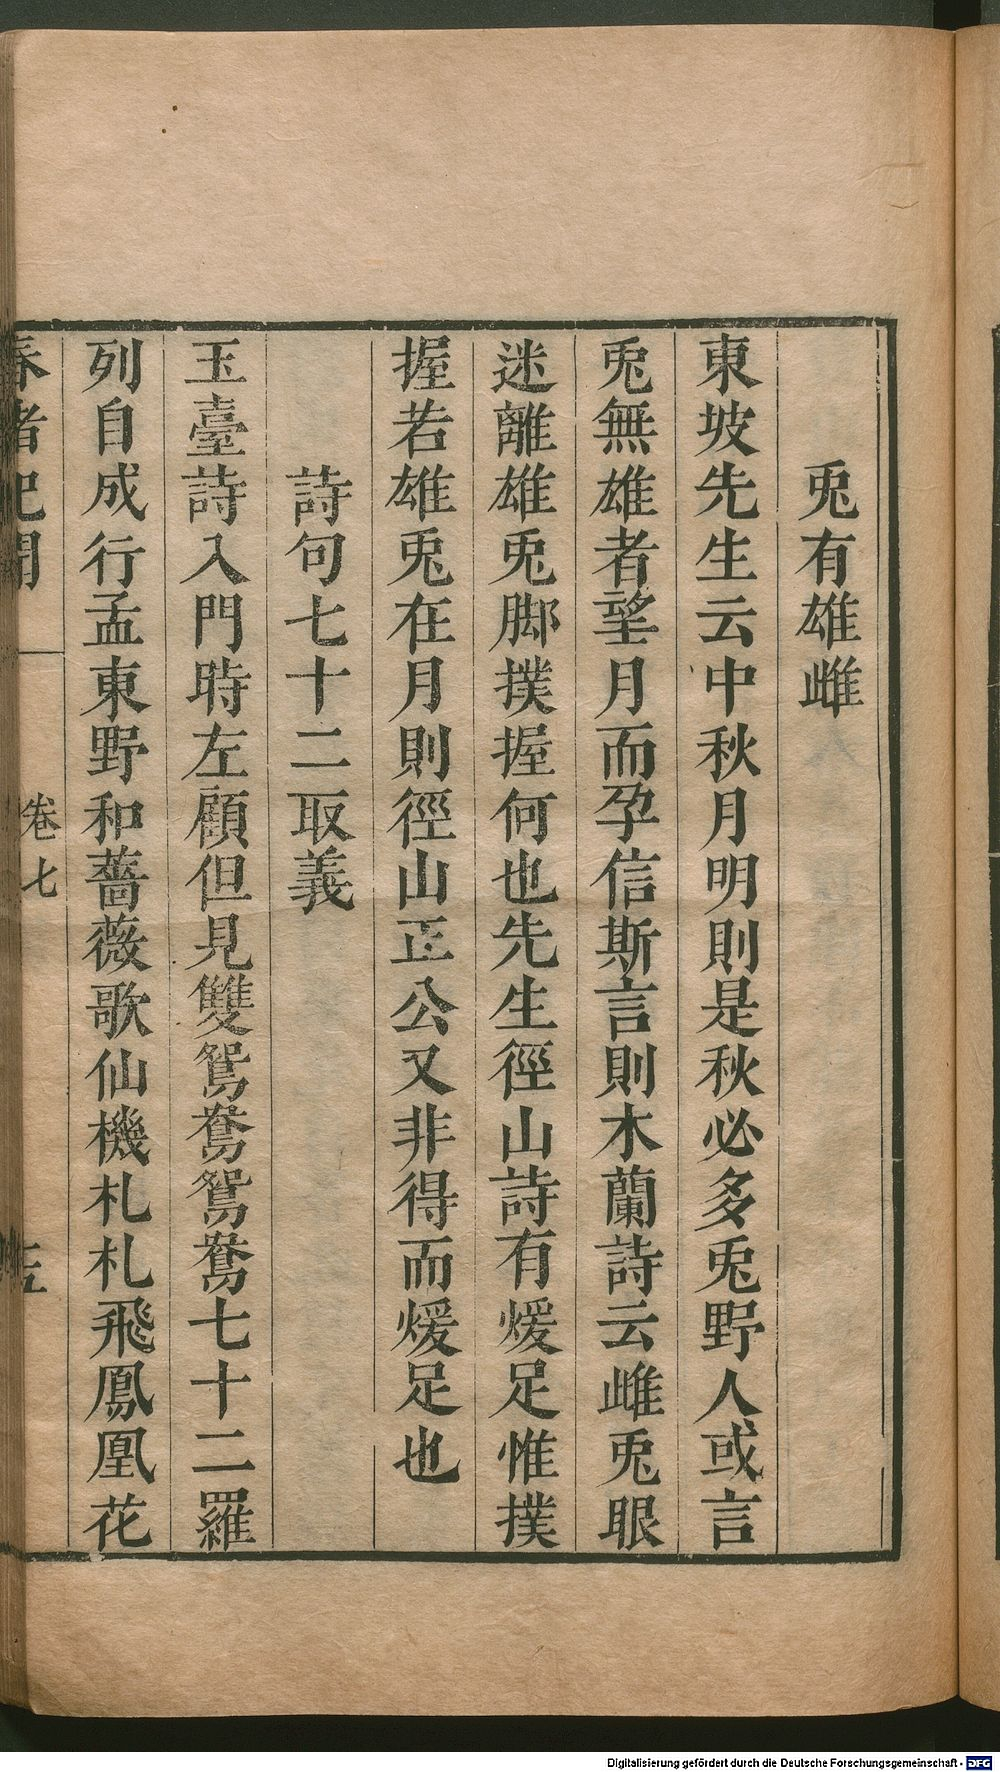 兎有雄雌
東坡先生云中秋月明則是秋必多兎野人或言
兎無雄者望月而孕信斯言則木蘭詩云雌兎眼
迷離雄兎脚撲握何也先生徑山詩有煖足惟撲
握若雄兎在月則徑山正公又非得而煖足也
詩句七十二取義
玉臺詩入門時左顧但見雙鴛鴦鴛鴦七十二羅
列自成行孟東野和薔薇歌仙機札札飛鳳凰花
春渚紀聞
卷七
五
Digitalisierung gefördert durch die Deutsche Forschungsgemeinschaft - DFG